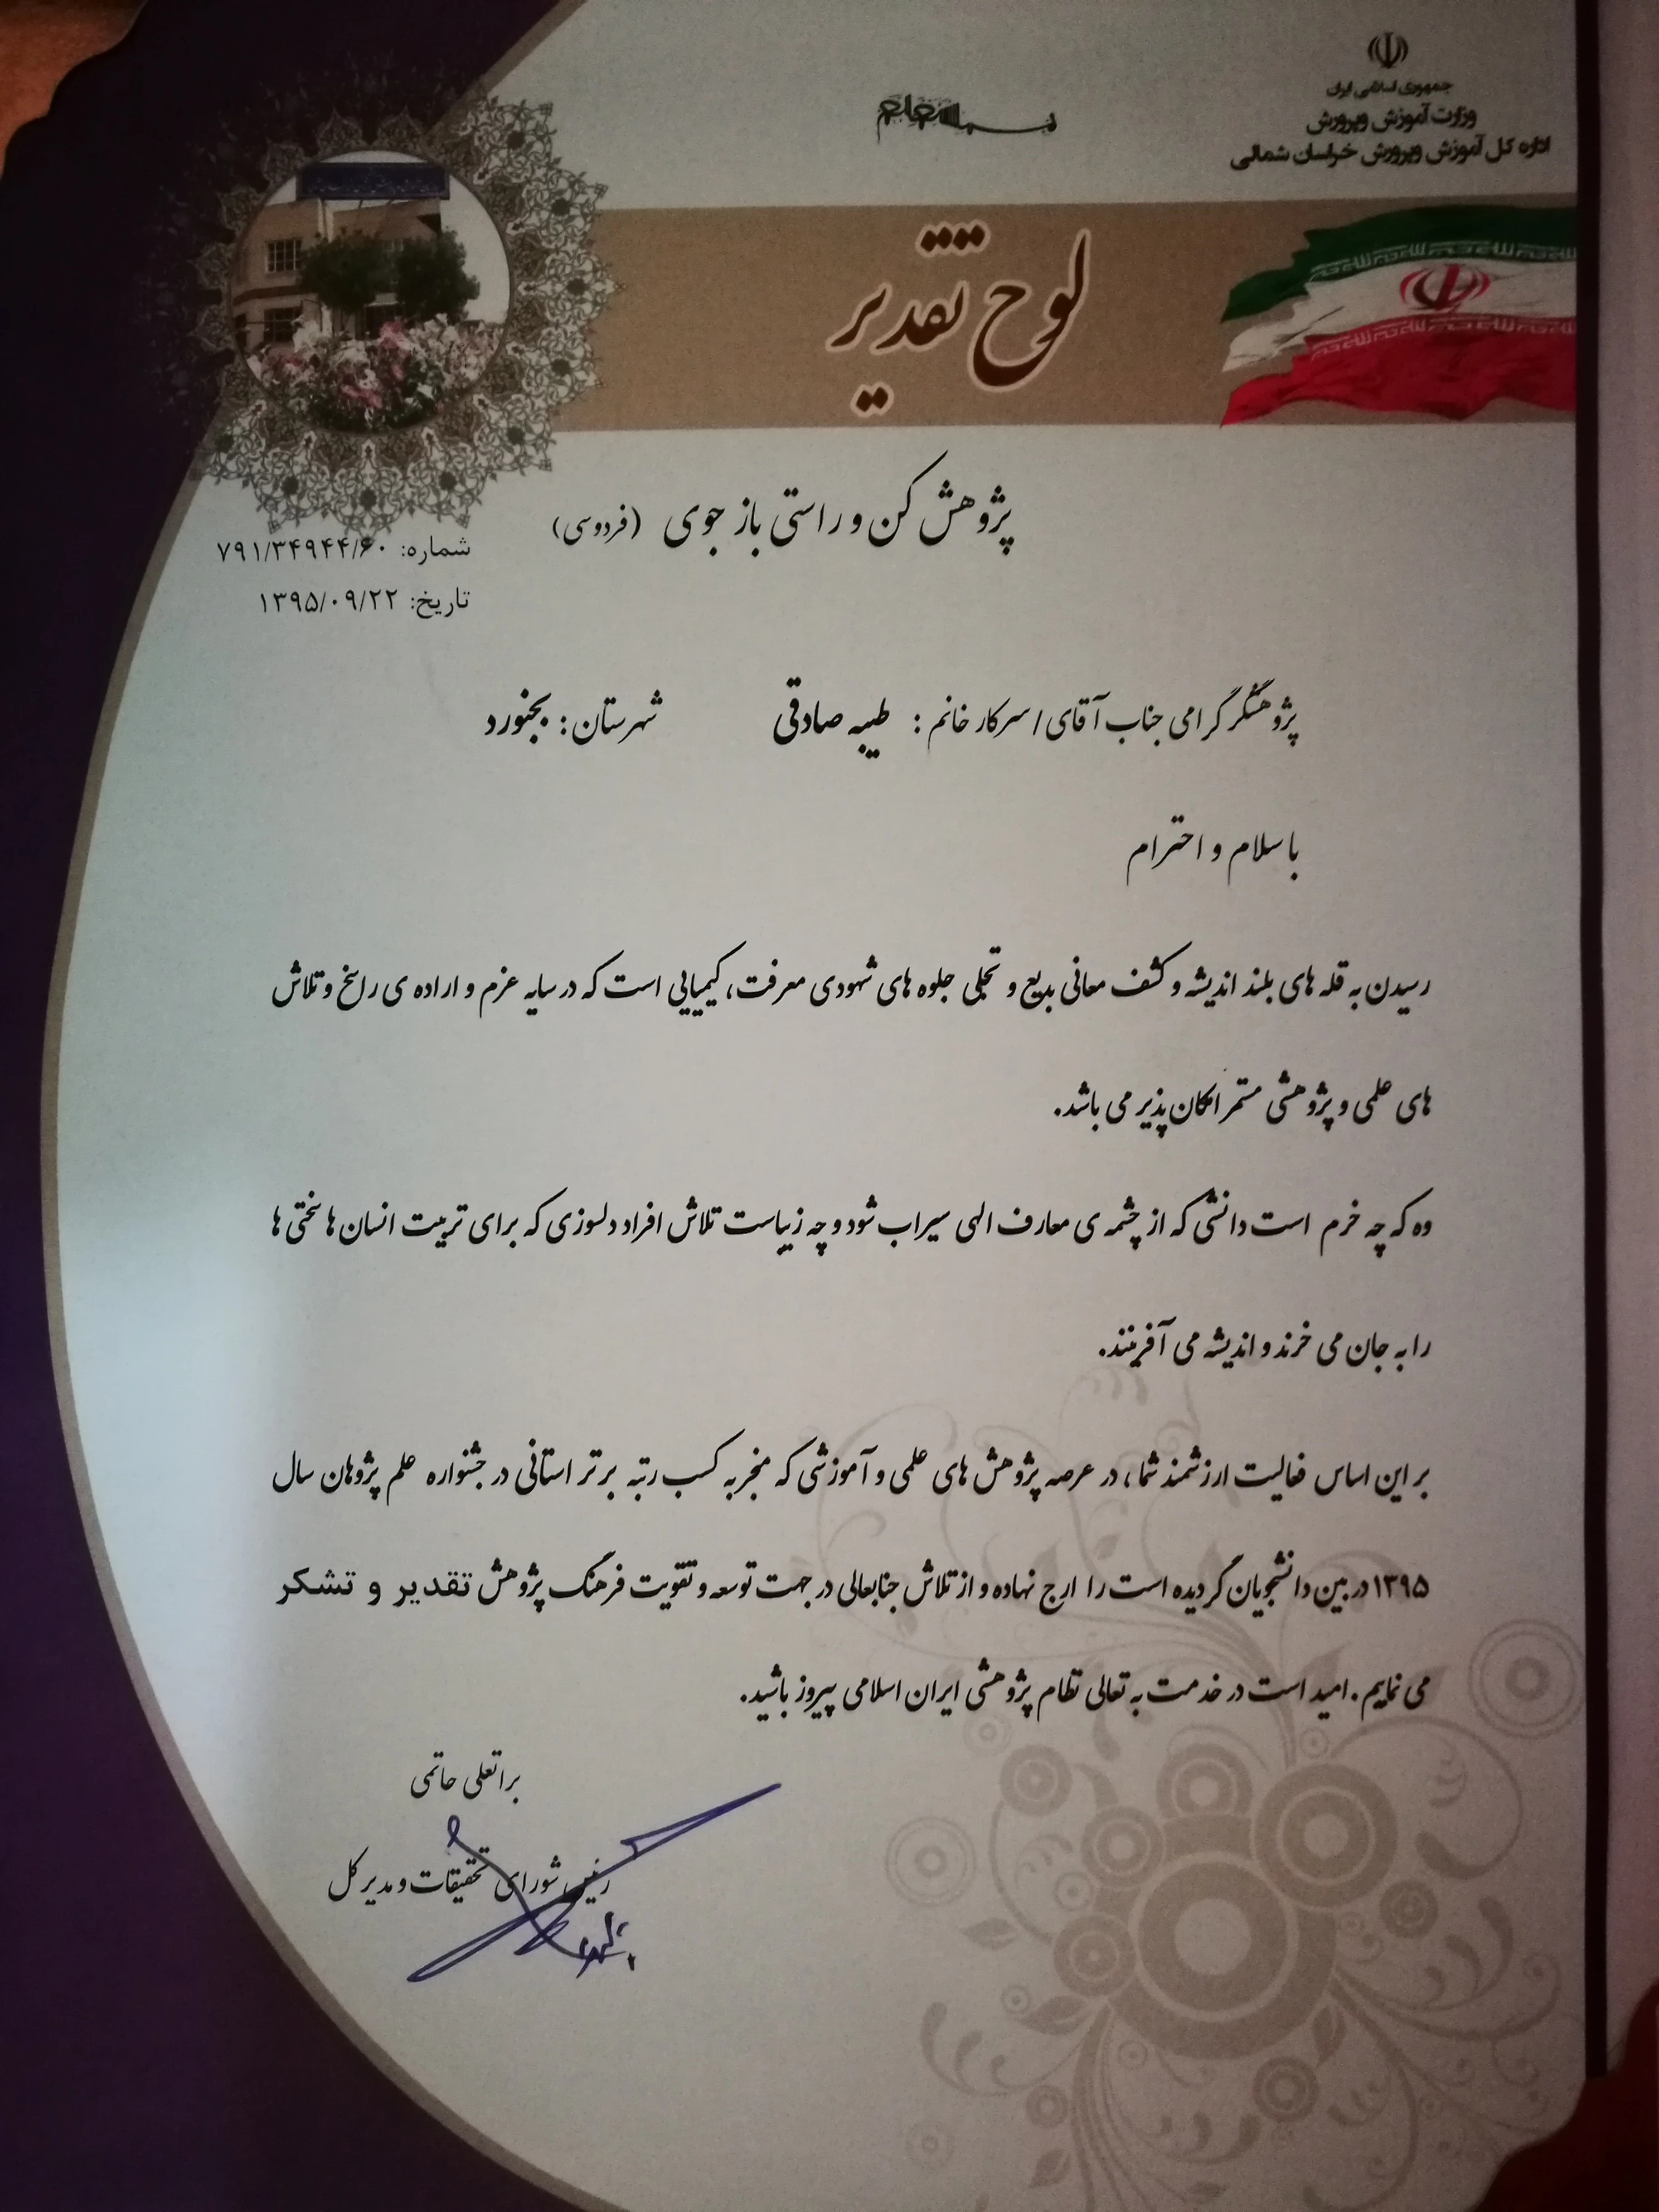 جمهوری اسلامی ایران
وزارت آموزش وپرورش
اداره کل آموزش وپرورش خراسان شمالی
لوح تقدیر
پژوهش کن و راستی باز جوی (فردوسی)
شماره: ۷۹۱/۳۴۹۴۴/۶۰
تاریخ: ۱۳۹۵/۰۹/۲۲
پژوهشگر گرامی جناب آقای/ سرکار خانم : طیبه صادقی شهرستان: بجنورد
با سلام و احترام
رسیدن به قله های بلند اندیشه و کشف معانی بدیع و تجلی جلوه های شهودی معرفت، کیمیایی است که در سایه عزم و اراده ی راسخ و تلاش
های علمی و پژوهشی مستمر امکان پذیر می باشد.
وه که چه خرم است دانشی که از چشمه ی معارف الهی سیراب شود و چه زیباست تلاش افراد دلسوزی که برای تربیت انسان ها سختی ها
را به جان می خرند و اندیشه می آفرینند.
بر این اساس فعالیت ارزشمند شما، در عرصه پژوهش های علمی و آموزشی که منجر به کسب رتبه برتر استانی در جشنواره علم پژوهان سال
۱۳۹۵ در بین دانشجویان گردیده است را ارج نهاده و از تلاش جنابعالی در جهت توسعه و تقویت فرهنگ پژوهش تقدیر و تشکر
می نمایم. امید است در خدمت به تعالی نظام پژوهشی ایران اسلامی پیروز باشید.
براتعلی حاتمی
رئیس شورای تحقیقات و مدیر کل